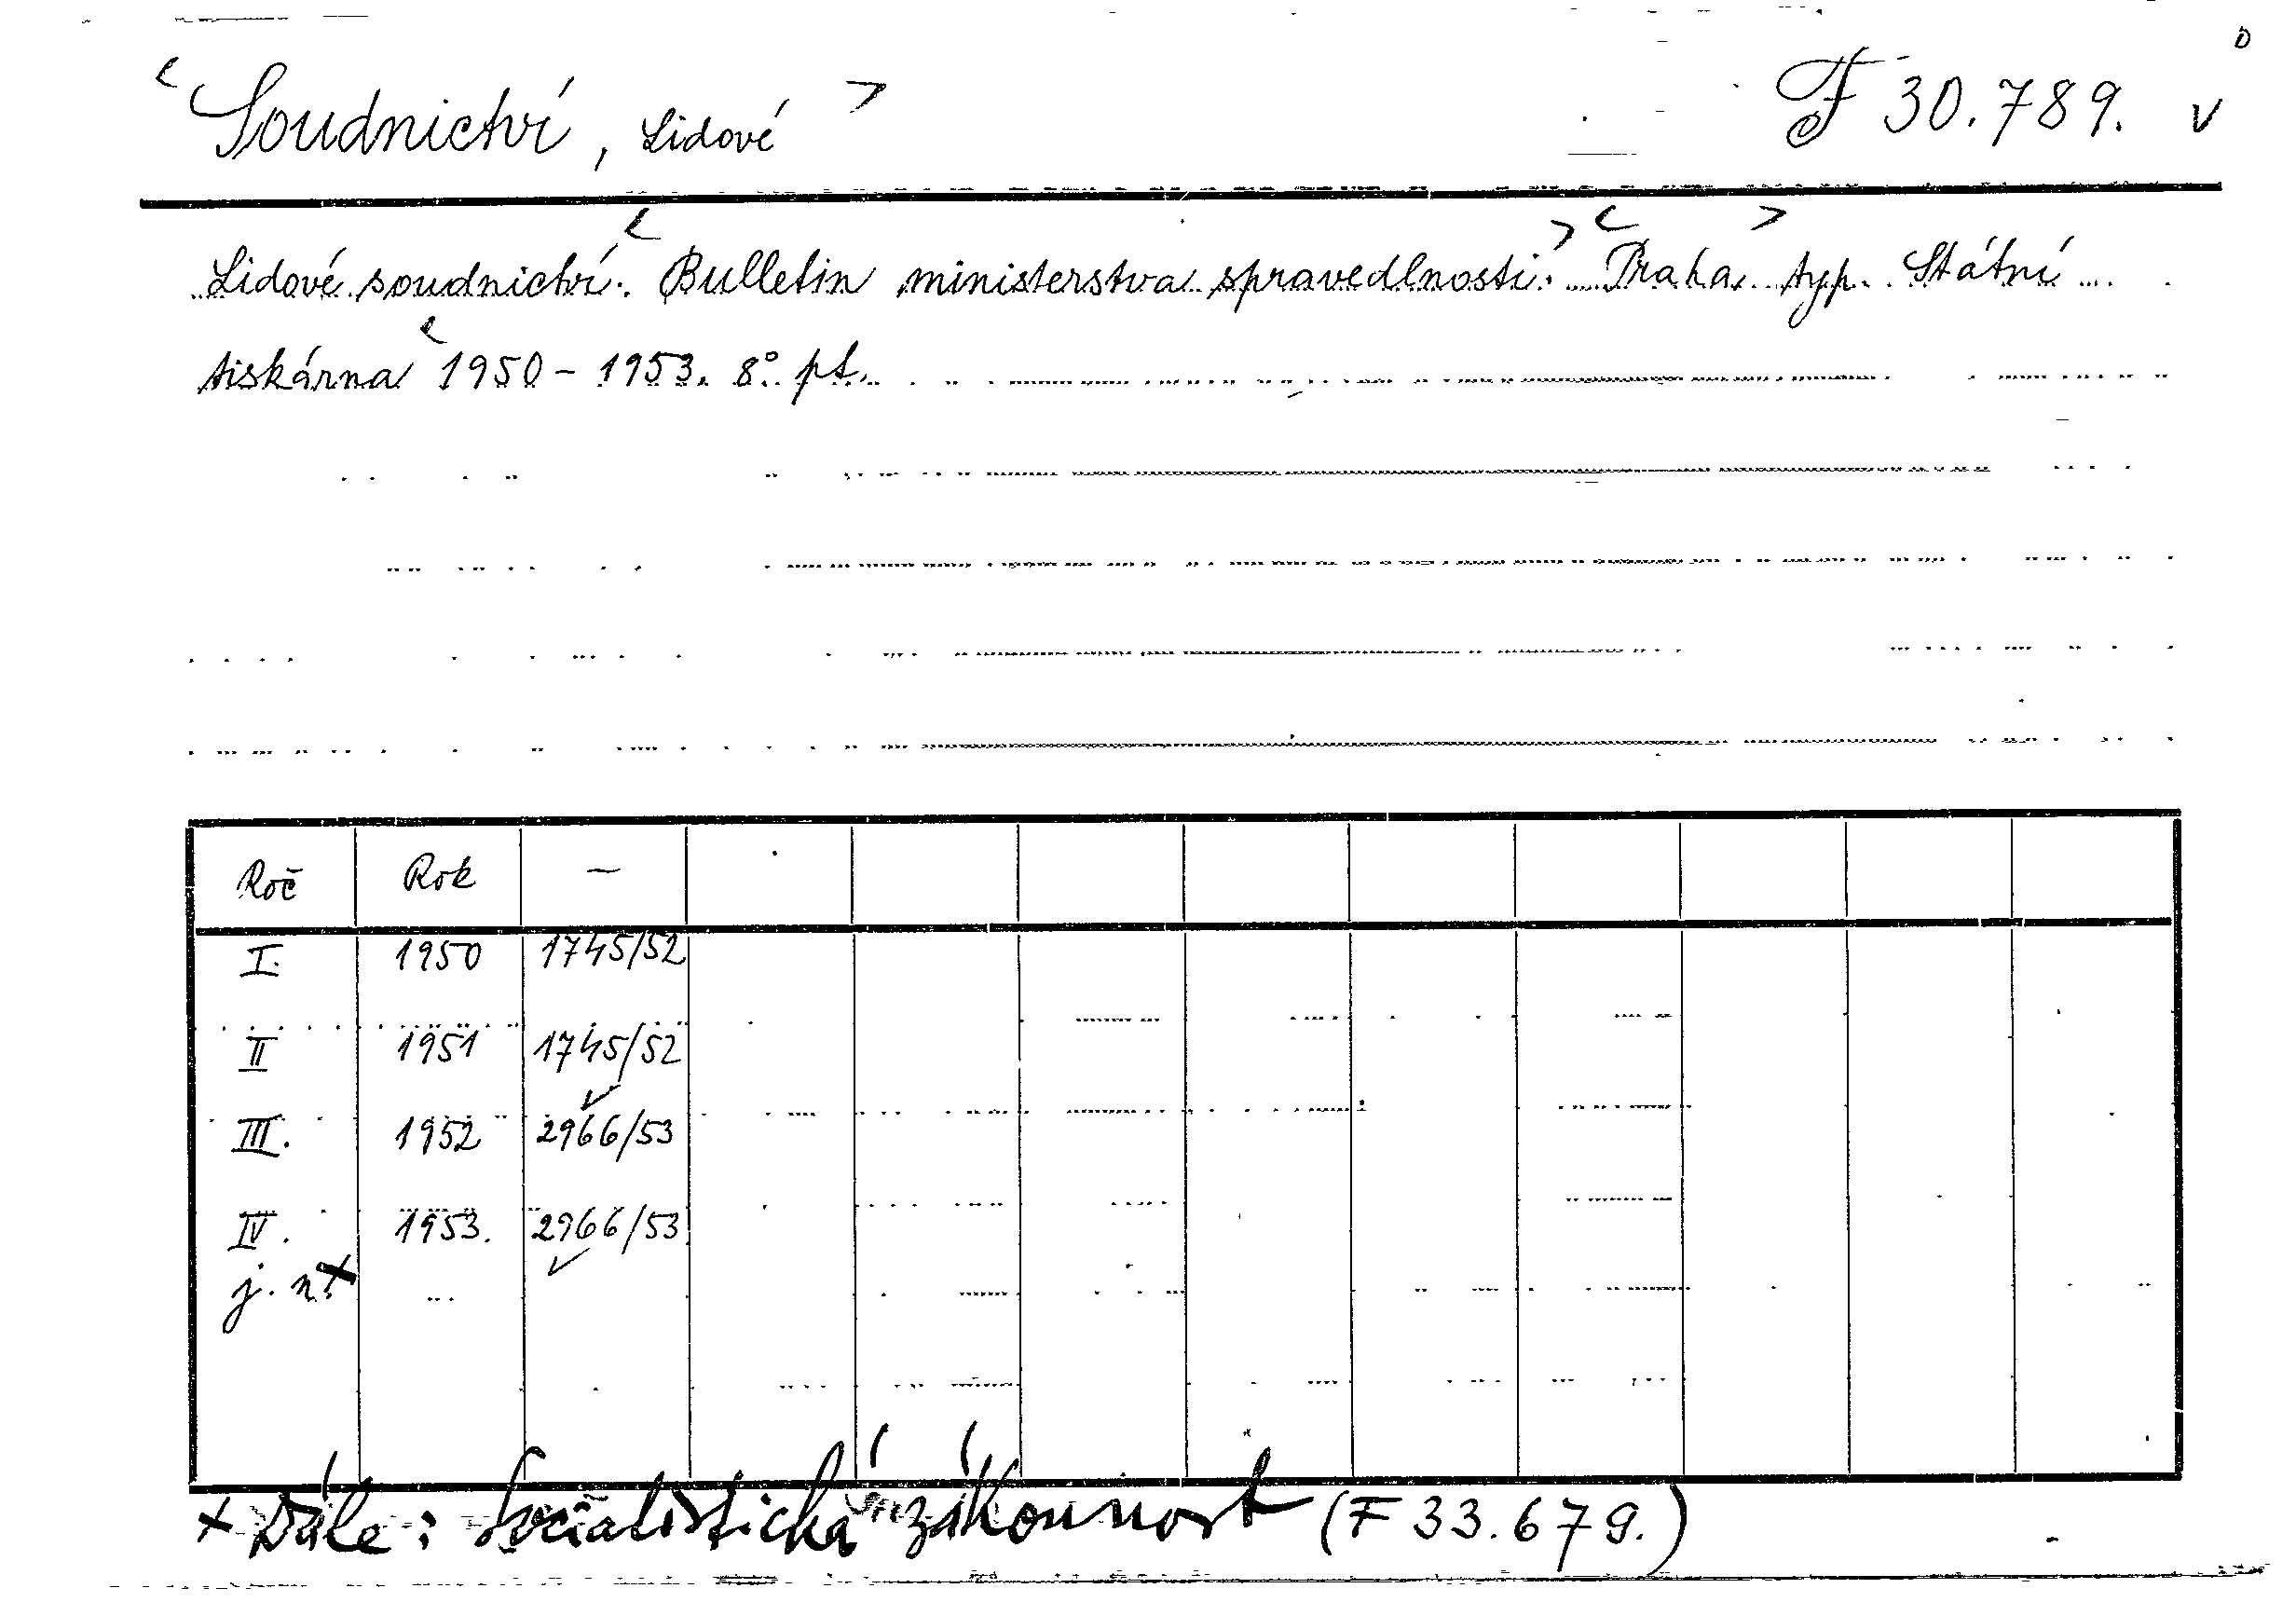 < Soudnictví, Lidové > F 30.789. v
Lidové soudnictví. < Bulletin ministerstva spravedlnosti. > < Praha, > typ. Státní
tiskárna < 1950 - 1953. 8° pt.
Roč Rok —
I. 1950 1745/52
II 1951 1745/52
III. 1952 2966/53
IV. 1953. 2966/53
j. n. x
x Dále: Socialistická zákonnost (F 33.679.)